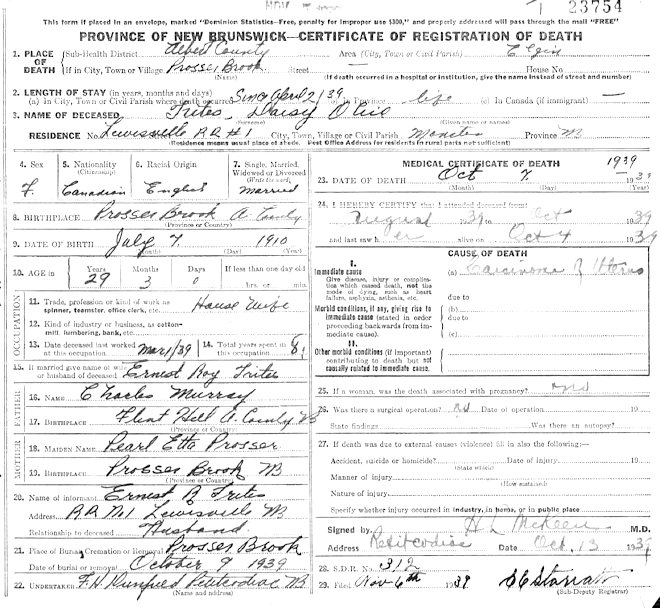 NOV 1 23754
This form if placed in an envelope, marked "Dominion Statistics-Free, penalty for improper use $300," and properly addressed will pass through the mail "FREE"
PROVINCE OF NEW BRUNSWICK—CERTIFICATE OF REGISTRATION OF DEATH
1. PLACE OF DEATH
Sub-Health District Albert County Area (City, Town or Civil Parish) Elgin
If in City, Town or Village Prosser Brook Street — House No.
(Name) (If death occurred in a hospital or institution, give the name instead of street and number)
2. LENGTH OF STAY (in years, months and days)
(a) In City, Town or Civil Parish where death occurred Since April 2/39 (b) In Province life (c) In Canada (if immigrant) —
3. NAME OF DECEASED Frites, Daisy Olie
(Surname) (Given name or names)
RESIDENCE No. Lewisville RR #1 City, Town, Village or Civil Parish Moncton Province NB
(Residence means usual place of abode. Post Office Address for residents of rural parts not sufficient.)
4. Sex 5. Nationality (Citizenship) 6. Racial Origin 7. Single, Married, Widowed or Divorced (Write the word)
F. Canadian English Married
8. BIRTHPLACE Prosser Brook A. County
(Province or Country)
9. DATE OF BIRTH July 7. 1910
(Month) (Day) (Year)
10. AGE in Years Months Days If less than one day old
29 3 0 hrs. or min.
OCCUPATION
11. Trade, profession or kind of work as spinner, teamster, office clerk, etc. House Wife
12. Kind of industry or business, as cotton-mill, lumbering, bank, etc.
13. Date deceased last worked at this occupation Mar 1/39 14. Total years spent in this occupation 8
15. If married give name of wife or husband of deceased Ernest Roy Frites
FATHER
16. NAME Charles Murray
17. BIRTHPLACE Flint Hill A. County NB
(Province or Country)
MOTHER
18. MAIDEN NAME Pearl Etta Prosser
19. BIRTHPLACE Prosser Brook NB
(Province or Country)
20. Name of informant Ernest R Frites
Address RR No 1 Lewisville NB
Relationship to deceased Husband
21. Place of Burial, Cremation or Removal Prosser Brook
Date of burial or removal October 9 1939
22. UNDERTAKER F. H. Dunfield Petitcodiac NB
(Name and address)
MEDICAL CERTIFICATE OF DEATH
1939
23. DATE OF DEATH Oct 7. 193
(Month) (Day) (Year)
24. I HEREBY CERTIFY that I attended deceased from:
August 1939 to Oct 1939
and last saw her alive on Oct 4 1939
CAUSE OF DEATH
I.
Immediate cause (a) Carcinoma of Uterus
Give disease, injury or complication which caused death, not the mode of dying, such as heart failure, asphyxia, asthenia, etc. due to
Morbid conditions, if any, giving rise to immediate cause (stated in order proceeding backwards from immediate cause). (b) due to (c)
II.
Other morbid conditions (if important) contributing to death but not causally related to immediate cause.
25. If a woman, was the death associated with pregnancy? no
26. Was there a surgical operation? no Date of operation 19
State findings Was there an autopsy?
27. If death was due to external causes (violence) fill in also the following:—
Accident, suicide or homicide? Date of injury 19
(State which)
Manner of injury
(How sustained)
Nature of injury
Specify whether injury occurred in industry, in home, or in public place
Signed by H L McKeen M.D.
Address Petitcodiac Date Oct. 13 1939
28. S.D.R. No. 312
29. Filed Nov 6th 1939 Starratt
(Sub-Deputy Registrar)